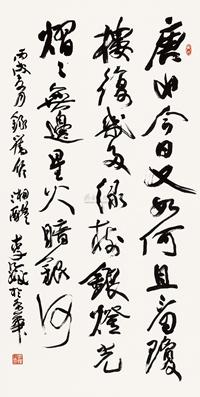 唐山今日又如何且看瓊
樓復幾多綠樹銀燈光
熠々無邊星火暗銀河
丙戌月錄舊作湘醴李鐸於京華